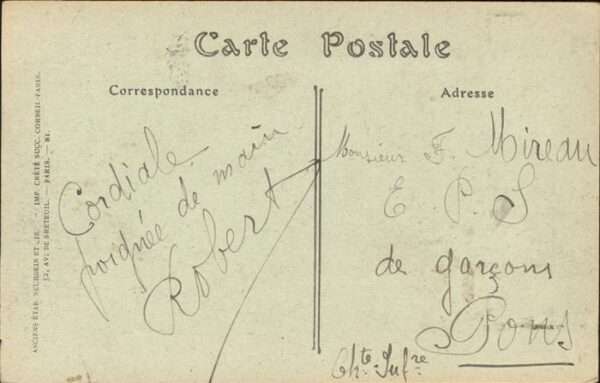 Carte Postale
Correspondance
Adresse
Cordiale
poignée de main
Robert
Monsieur F. Mireau
E. P. S
de garçons
Pons
Chte Infre
ANCIENS ÉTAB. NEURDEIN ET CIE. — IMP. CRÉTÉ SUCC. CORBEIL-PARIS.
52, AV. DE BRETEUIL. — PARIS. — 81.